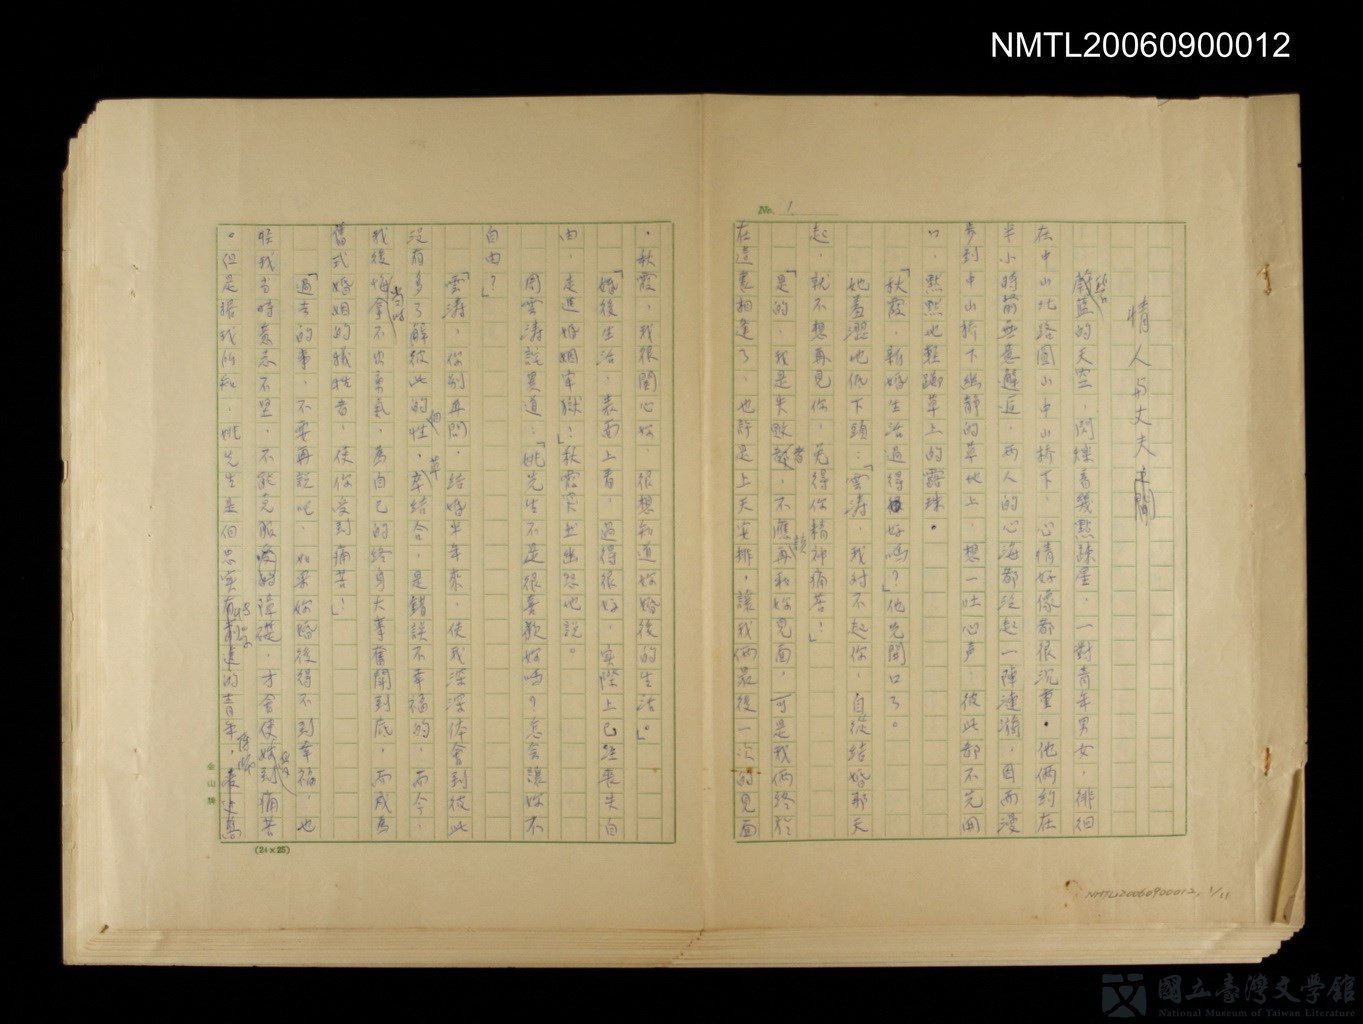 NMTL20060900012
No. 1
情人与丈夫之間
蔚藍的天空，閃爍着幾點疎星，一對青年男女，徘徊
在中山北路圓山中山橋下，心情好像都很沉重。他倆約在
半小時前無意邂逅，兩人的心海都泛起一陣漣漪，因而漫
步到中山橋下幽靜的草地上，想一吐心声，彼此都不先開
口，默默地輕踏草上的露珠。
「秋霞，新婚生活過得很好嗎？」他先開口了。
她羞澀地低下頭：「雲濤，我対不起你，自從結婚那天
起，就不想再見你，免得你精神痛苦！」
「是的，我是失敗者，不應再和妳見面，可是我倆終於
在這裏相逢了，也許是上天安排，讓我倆最後一次的見面
。秋霞，我很関心妳，很想知道妳婚後的生活。」
「婚後生活，表面上看，過得很好，实際上已經喪失自
由，走進婚姻牢獄！」秋霞深深幽怨地說。
周雲濤詫異道：「姚先生不是很喜歡妳嗎？怎会讓妳不
自由？」
「雲濤，你別再問，結婚半年來，使我深深体會到彼此
沒有多了解彼此的個性，草率結合，是錯誤不幸福的，而今，
我後悔當時拿不出勇氣，為自己的終身大事奮鬥到底，而成為
舊式婚姻的犧牲者，使你受到痛苦！」
「過去的事，不要再說吧，如果妳婚後得不到幸福，也
怪我當時意志不堅，不能克服愛的障礙，才會使妳受到痛苦
。但是據我所知，姚先生是個忠实有前途的青年，
金山牌
(24×25)
NMTL20060900012, 1/11
國立臺灣文學館
National Museum of Taiwan Literature